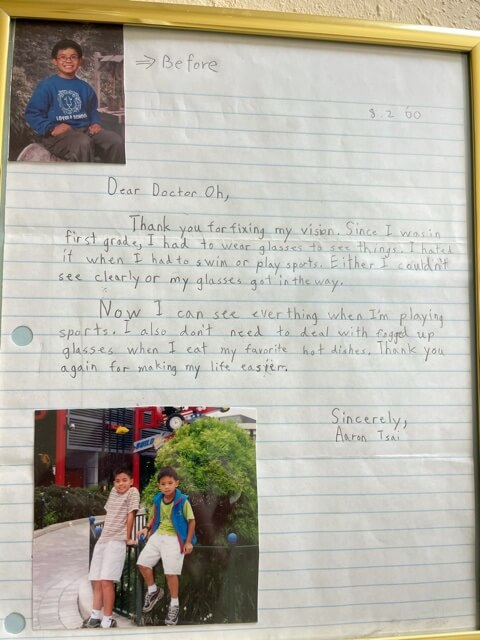 ⇒ Before
8 2 '00
Dear Doctor Oh,
Thank you for fixing my vision. Since I was in
first grade, I had to wear glasses to see things. I hated
it when I had to swim or play sports. Either I couldn't
see clearly or my glasses got in the way.
Now I can see everthing when I'm playing
sports. I also don't need to deal with fogged up
glasses when I eat my favorite hot dishes. Thank you
again for making my life easier.
Sincerely,
Aaron Tsai
BUILD